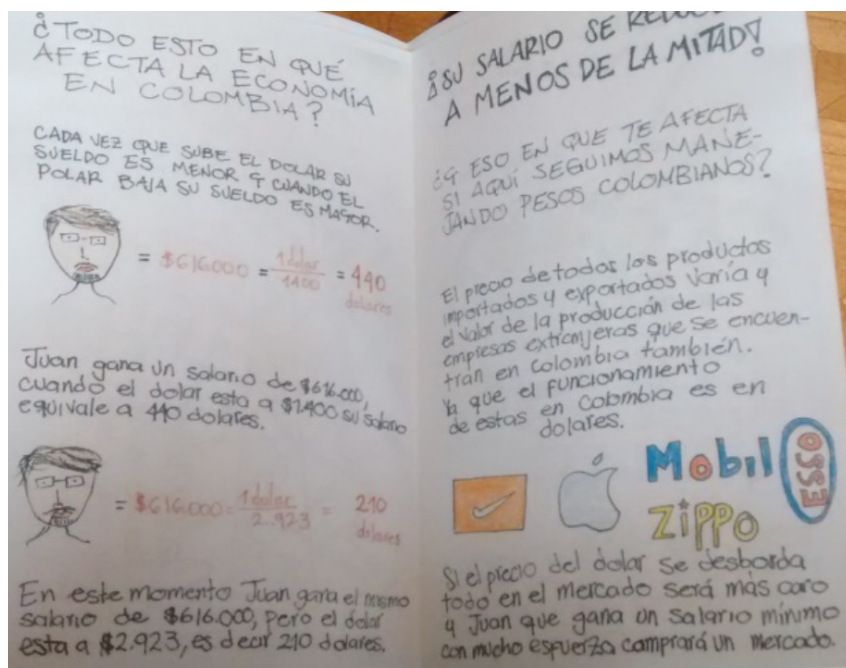 ¿TODO ESTO EN QUÉ
AFECTA LA ECONOMÍA
EN COLOMBIA?
CADA VEZ QUE SUBE EL DOLAR SU
SUELDO ES MENOR Y CUANDO EL
DOLAR BAJA SU SUELDO ES MAYOR.
= $616.000 = 1 dolar = 440
1400 dolares
Juan gana un salario de $616.000,
cuando el dolar esta a $1.400 su salario
equivale a 440 dolares.
= $616.000 = 1 dolar = 210
2.923 dolares
En este momento Juan gana el mismo
salario de $616.000, pero el dolar
esta a $2.923, es decir 210 dolares.
¡SU SALARIO SE
A MENOS DE LA MITAD!
¿Y ESO EN QUE TE AFECTA
SI AQUÍ SEGUIMOS MANE-
JANDO PESOS COLOMBIANOS?
El precio de todos los productos
importados y exportados varía y
el valor de la producción de las
empresas extranjeras que se encuen-
tran en Colombia también.
Ya que el funcionamiento
de estas en Colombia es en
dolares.
Mobil
ESSO
ZiPPO
Si el precio del dolar se desborda
todo en el mercado será más caro
y Juan que gana un salario mínimo
con mucho esfuerzo comprará un mercado.